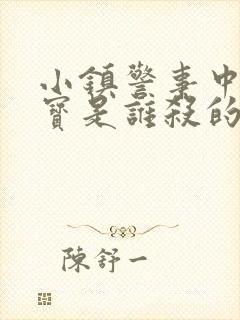 小鎮警事中
寳是誰殺的
陳舒一